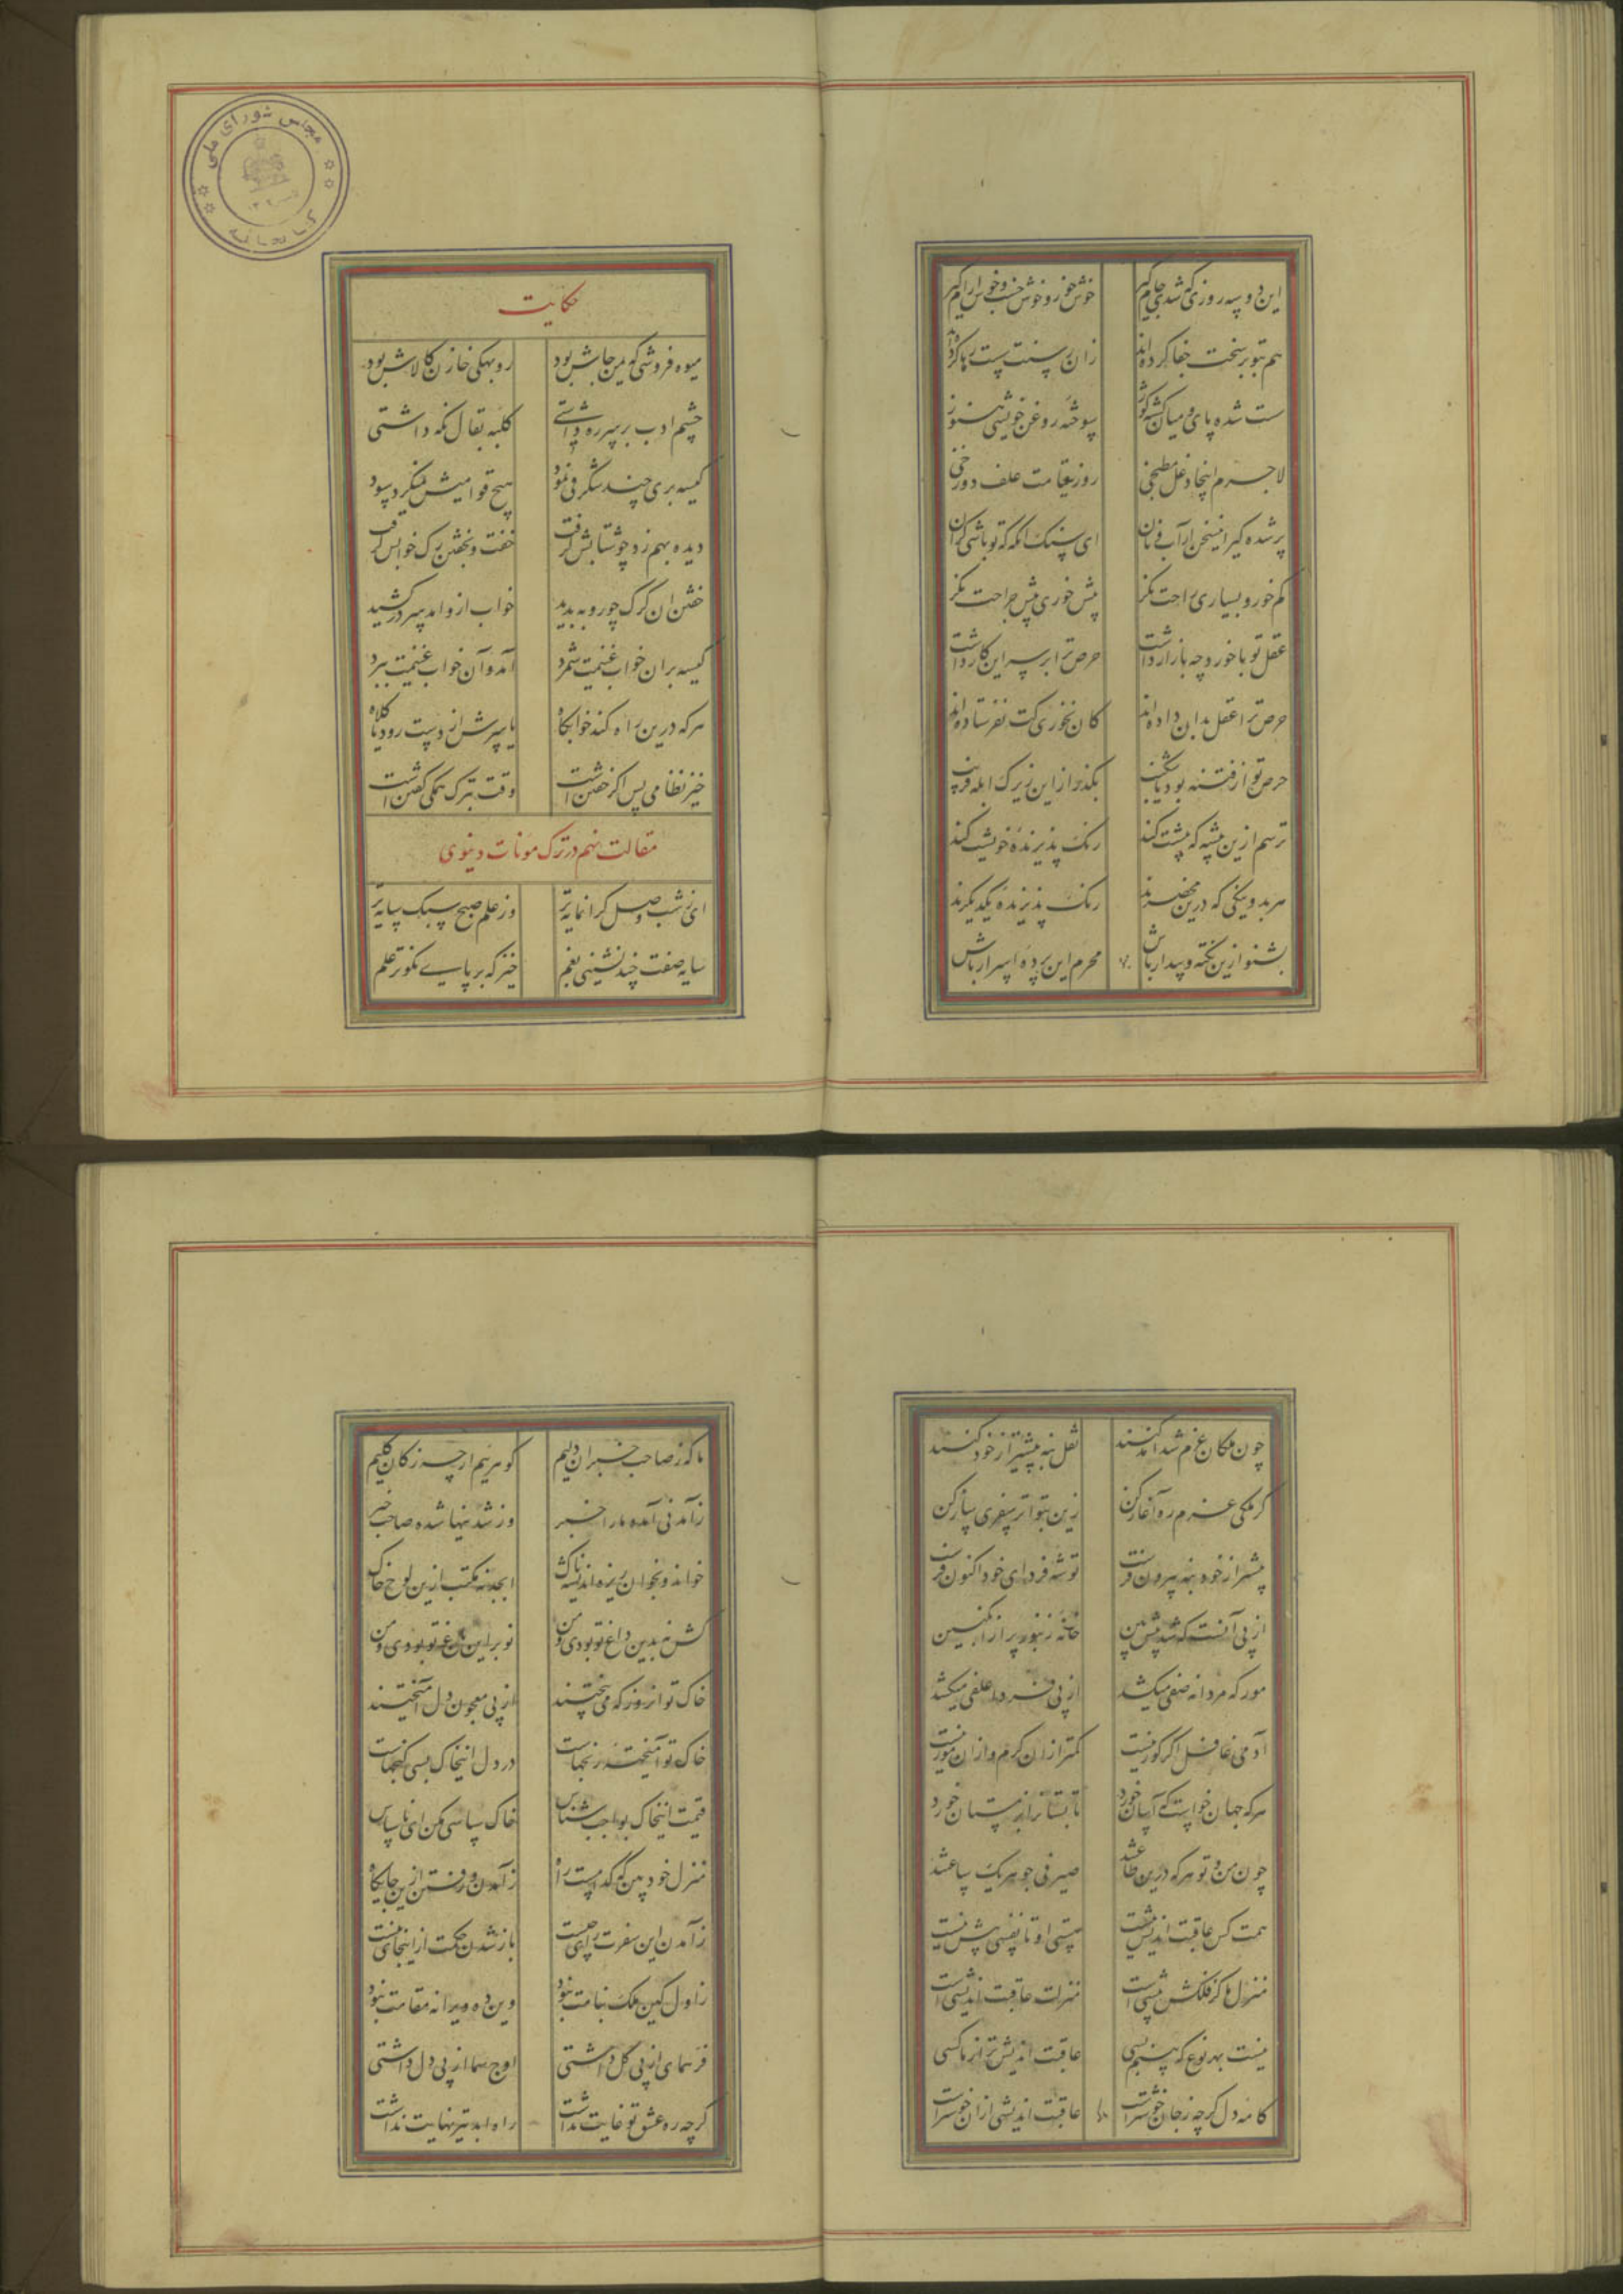 این دو سه روزی که شدی جام گیر خوش خور و خوش خسب و خوش آرام گیر
هم بتو بر سخت جفا کرده‌اند زان رسنت سست رها کرده‌اند
ست شده پای و میان گشته کوژ سوخته روغن خویشی هنوز
لاجرم اینجا دغل مطبخی روز قیامت علف دوزخی
پر شده گیر این شکم از آب و نان ای سبک آنگه که تو باشی گران
کم خور و بسیاری راحت نگر بیش خور و بیش جراحت نگر
عقل تو با خورد چه بازار داشت حرص ترا بر سر این کار داشت
حرص ترا عقل بدان داده‌اند کان نخوری کت نفرستاده‌اند
حرص تو از فتنه بود ناشکیب بگذر از این زیرک ابله فریب
ترسم ازین پیشه که پیشت کند رنگ پذیرنده خویشت کند
هر بد و نیکی که درین محضرند رنگ پذیرنده یکدیگرند
بشنو ازین نکته و بیدار باش محرم این پرده اسرار باش
مجلس شورای ملی
کتابخانه
حکایت
میوه فروشی که یمن جاش بود روبهکی خازن کالاش بود
چشم ادب بر سر ره داشتی کلبه بقال نگه داشتی
کیسه بری چند شگرفی نمود هیچ فسونیش نمیکرد سود
دیده بهم زد چو شتابش گرفت خفت و بخفتن رگ خوابش گرفت
خفتن آن گرگ چو روبه بدید خواب ازو آمد و سر در کشید
کیسه بر آن خواب غنیمت شمرد آمد و آن خواب غنیمت ببرد
هر که درین راه کند خوابگاه یا سرش از دست رود یا کلاه
خیز نظامی پس اگر خفتن است وقت بترک همگی گفتن است
مقالت نهم در ترک مونات دنیوی
ای ز شب وصل گرانمایه‌تر وز علم صبح سبک سایه‌تر
سایه صفت چند نشینی بغم خیز که بر پای نکوتر علم
چون ملکان عزم شد آمد کنند نقل بنه پیشتر از خود کنند
گر ملکی عزم ره آغاز کن زین بتواتر سفری ساز کن
پیشتر از خود بنه بیرون فرست توشه فردای خود اکنون فرست
از پی آنست که شد پیش بین خانه زنبور پر از انگبین
مور که مردانه صفی میکشد از پی فردا علفی میکشد
آدمی غافل اگر کور نیست کمتر از ان کرم و از ان مور نیست
هر که جهان خواست که آسان خورد تابستان غم زمستان خورد
چون من و تو هر که درین طاعتند صیرفی جوهر یک ساعتند
همت کس عاقبت اندیش نیست بینی او تا نفسی بیش نیست
منزل ما کز فلکش بیشی است منزلت عاقبت اندیشی است
نیست بهر نوع که بینم بسی عاقبت اندیش‌تر از ما کسی
کامه دل گرچه ز جان خوشتر است عاقبت اندیشی از ان خوشتر است
ما که ز صاحب خبران دلیم گوهریم ارچه ز کان گلیم
ز آمدنی آمده ما را خبر وز شدنیها شده صاحب خبر
خوانده بخوان ریزه اندیشه ناک ابجد نه مکتب ازین لوح خاک
کس نه بدین داغ تو بودی و من نوبر این باغ تو بودی و من
خاک تو آن روز که می بیختند از پی معجون دل آمیختند
خاک تو آمیخته رنجهاست در دل اینخاک بسی گنجهاست
قیمت اینخاک بواجب شناس خاک سپاسی مکن ای ناسپاس
منزل خود بین که کدامست راه ز آمدن و رفتن ازین جایگاه
ز آمدن این سفرت رای چیست باز شدن حکمت از اینجای چیست
ز اول کین ملک بنامت نبود وین ده ویرانه مقامت نبود
فر همای از پی گل داشتی اوج هما از پی دل داشتی
گرچه ره عشق تو غایت نداشت راه ابد نیز نهایت نداشت